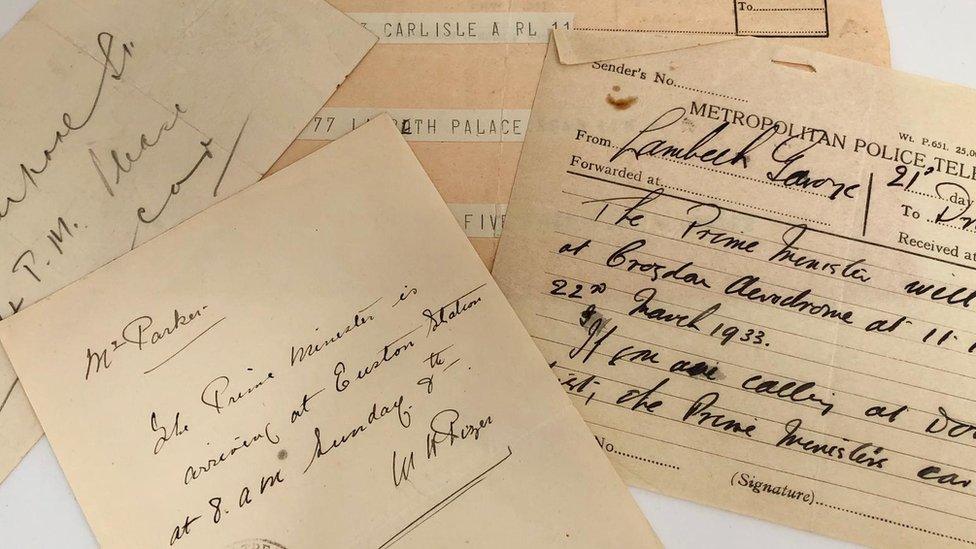 St.
P.M. please
car
CARLISLE A RL 11
77 LAMBETH PALACE
FIVE
To
Mr Parker.
The Prime Minister is
arriving at Euston Station
at 8. am Sunday. 8th.
Sender's No.
METROPOLITAN POLICE TELE
Wt. P.651. 25,00
From Lambeth Garage
21st day
Forwarded at
To
Received at
The Prime Minister will
at Croydon Aerodrome at 11.
22nd March 1933.
If you are calling at
the Prime Ministers car
No.
(Signature)